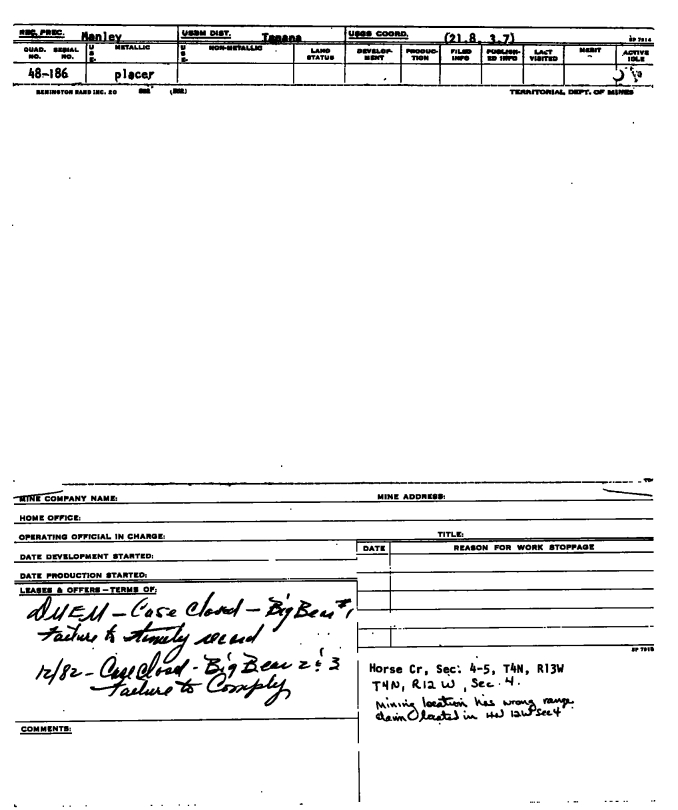 REC. PREC. Manley USBM DIST. Tanana USGS COORD. (21.8, 3.7) SP 7014
QUAD. NO. SERIAL NO. USE METALLIC USE NON-METALLIC LAND STATUS DEVELOPMENT PRODUCTION FILED INFO PUBLISHED INFO LAST VISITED MERIT ACTIVE IDLE
48-186 placer
REMINGTON RAND INC. 20 TERRITORIAL DEPT. OF MINES
MINE COMPANY NAME: MINE ADDRESS:
HOME OFFICE:
OPERATING OFFICIAL IN CHARGE: TITLE:
DATE DEVELOPMENT STARTED: DATE REASON FOR WORK STOPPAGE
DATE PRODUCTION STARTED:
LEASES & OFFERS - TERMS OF:
DMEM - Case Closed - Big Bear #1
Failure to timely record
SP 7015
12/82 - Case Closed - Big Bear 2 & 3
Failure to Comply
Horse Cr, Sec: 4-5, T4N, R13W
T4N, R12 W, Sec. 4.
Mining location has wrong range
claim located in 12W Sec 4
COMMENTS: